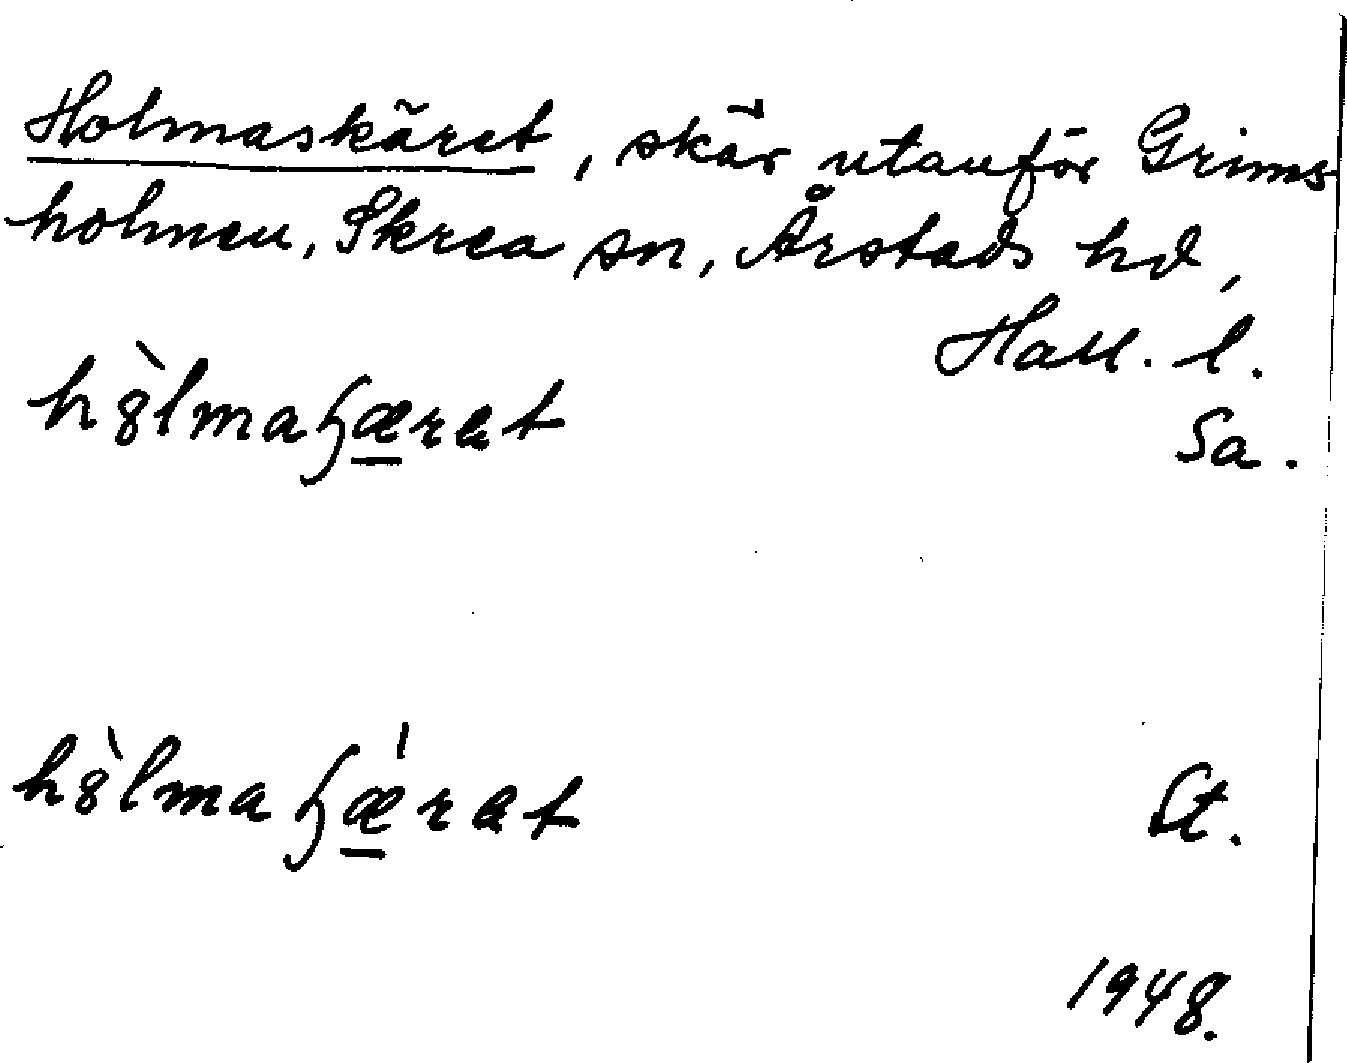 Holmaskäret, skär utanför Grims
holmen, Skrea sn, Årstads hd,
Hall. l.
hȣ̀lmaɧæ̱rat
Sa.
hȣ̀lmaɧǽ̱rat
St.
1948.